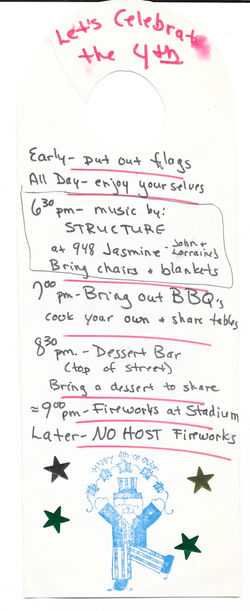 Let's Celebrate
the 4th
Early- put out flags
All Day- enjoy yourselves
6:30 pm- music by:
STRUCTURE
at 948 Jasmine - John +
Lorraine's
Bring chairs + blankets
7:00 pm- Bring out BBQ's
cook your own + share tables
8:30
pm. - Dessert Bar
(top of street)
Bring a dessert to share
≈9:00 pm- Fireworks at Stadium
Later- NO HOST Fireworks
HAPPY 4th OF JULY